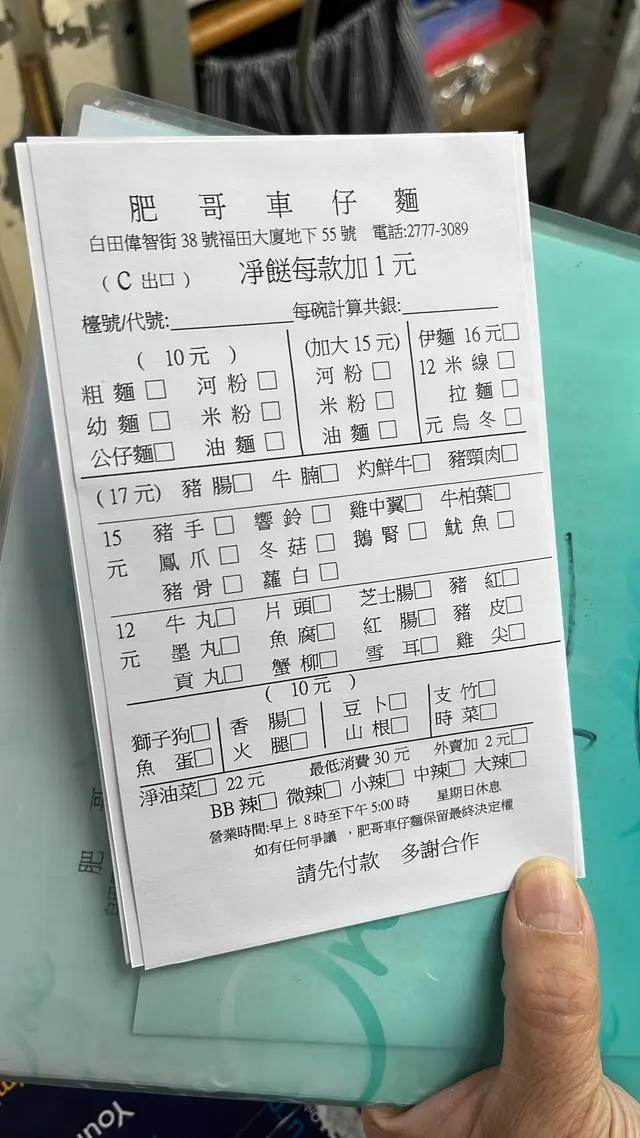 肥哥車仔麵
白田偉智街 38 號福田大廈地下 55 號 電話:2777-3089
( C 出口 ) 凈餸每款加 1 元
檯號/代號:________ 每碗計算共銀:________
( 10 元 ) (加大 15 元) 伊麵 16 元□
粗麵□ 河粉□ 河粉□ 12 米線□
幼麵□ 米粉□ 米粉□ 拉麵□
公仔麵□ 油麵□ 油麵□ 元 烏冬□
(17 元) 豬腸□ 牛腩□ 灼鮮牛□ 豬頸肉□
15 豬手□ 響鈴□ 雞中翼□ 牛柏葉□
元 鳳爪□ 冬菇□ 鵝腎□ 魷魚□
豬骨□ 蘿白□
12 牛丸□ 片頭□ 芝士腸□ 豬紅□
元 墨丸□ 魚腐□ 紅腸□ 豬皮□
貢丸□ 蟹柳□ 雪耳□ 雞尖□
( 10 元 )
獅子狗□ 香腸□ 豆卜□ 支竹□
魚蛋□ 火腿□ 山根□ 時菜□
淨油菜□ 22 元 最低消費 30 元 外賣加 2 元□
BB 辣□ 微辣□ 小辣□ 中辣□ 大辣□
營業時間:早上 8 時至下午 5:00 時 星期日休息
如有任何爭議 ，肥哥車仔麵保留最終決定權
請先付款 多謝合作
肥
You